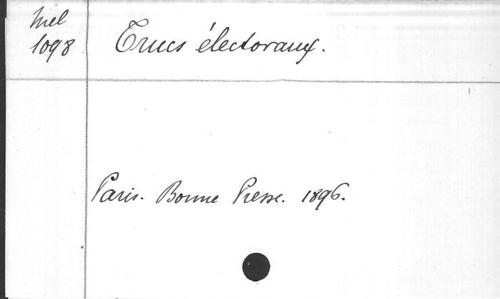 Mel
1098
Trucs électoraux.
Paris. Bonne Presse. 1896.